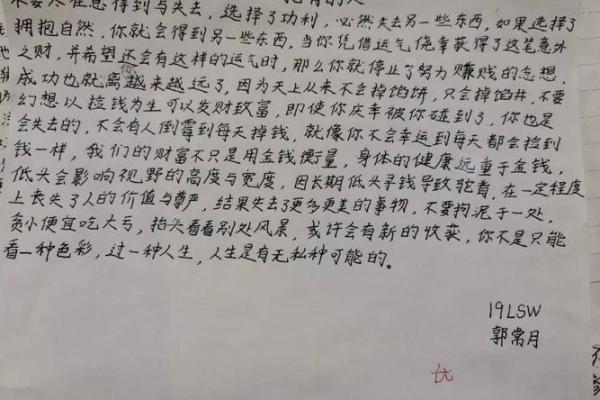 不要太在意得到与失去，选择了功利，必然失去另一些东西，如果选择了
拥抱自然，你就会得到另一些东西，当你凭借运气侥幸获得了这笔意外
之财，并希望还会有这样的运气时，那么你就停止了努力赚钱的念想，
成功也就离你越来越远了，因为天上从来不会掉馅饼，只会掉馅井，不要
幻想以捡钱为生可以发财致富，即使你庆幸被你碰到了，你也是
会失去的，不会有人倒霉到每天掉钱，就像你不会幸运到每天都会捡到
钱一样，我们的财富不只是用金钱衡量，身体的健康远重于金钱，
低头会影响视野的高度与宽度，因长期低头寻钱导致驼背，在一定程度
上丧失了人的价值与尊严，结果失去了更多更美的事物，不要拘泥于一处，
贪小便宜吃大亏，抬头看看别处风景，或许会有新的收获，你不是只能
看一种色彩，过一种人生，人生是有无私种可能的。
19LSW
郭常月
优